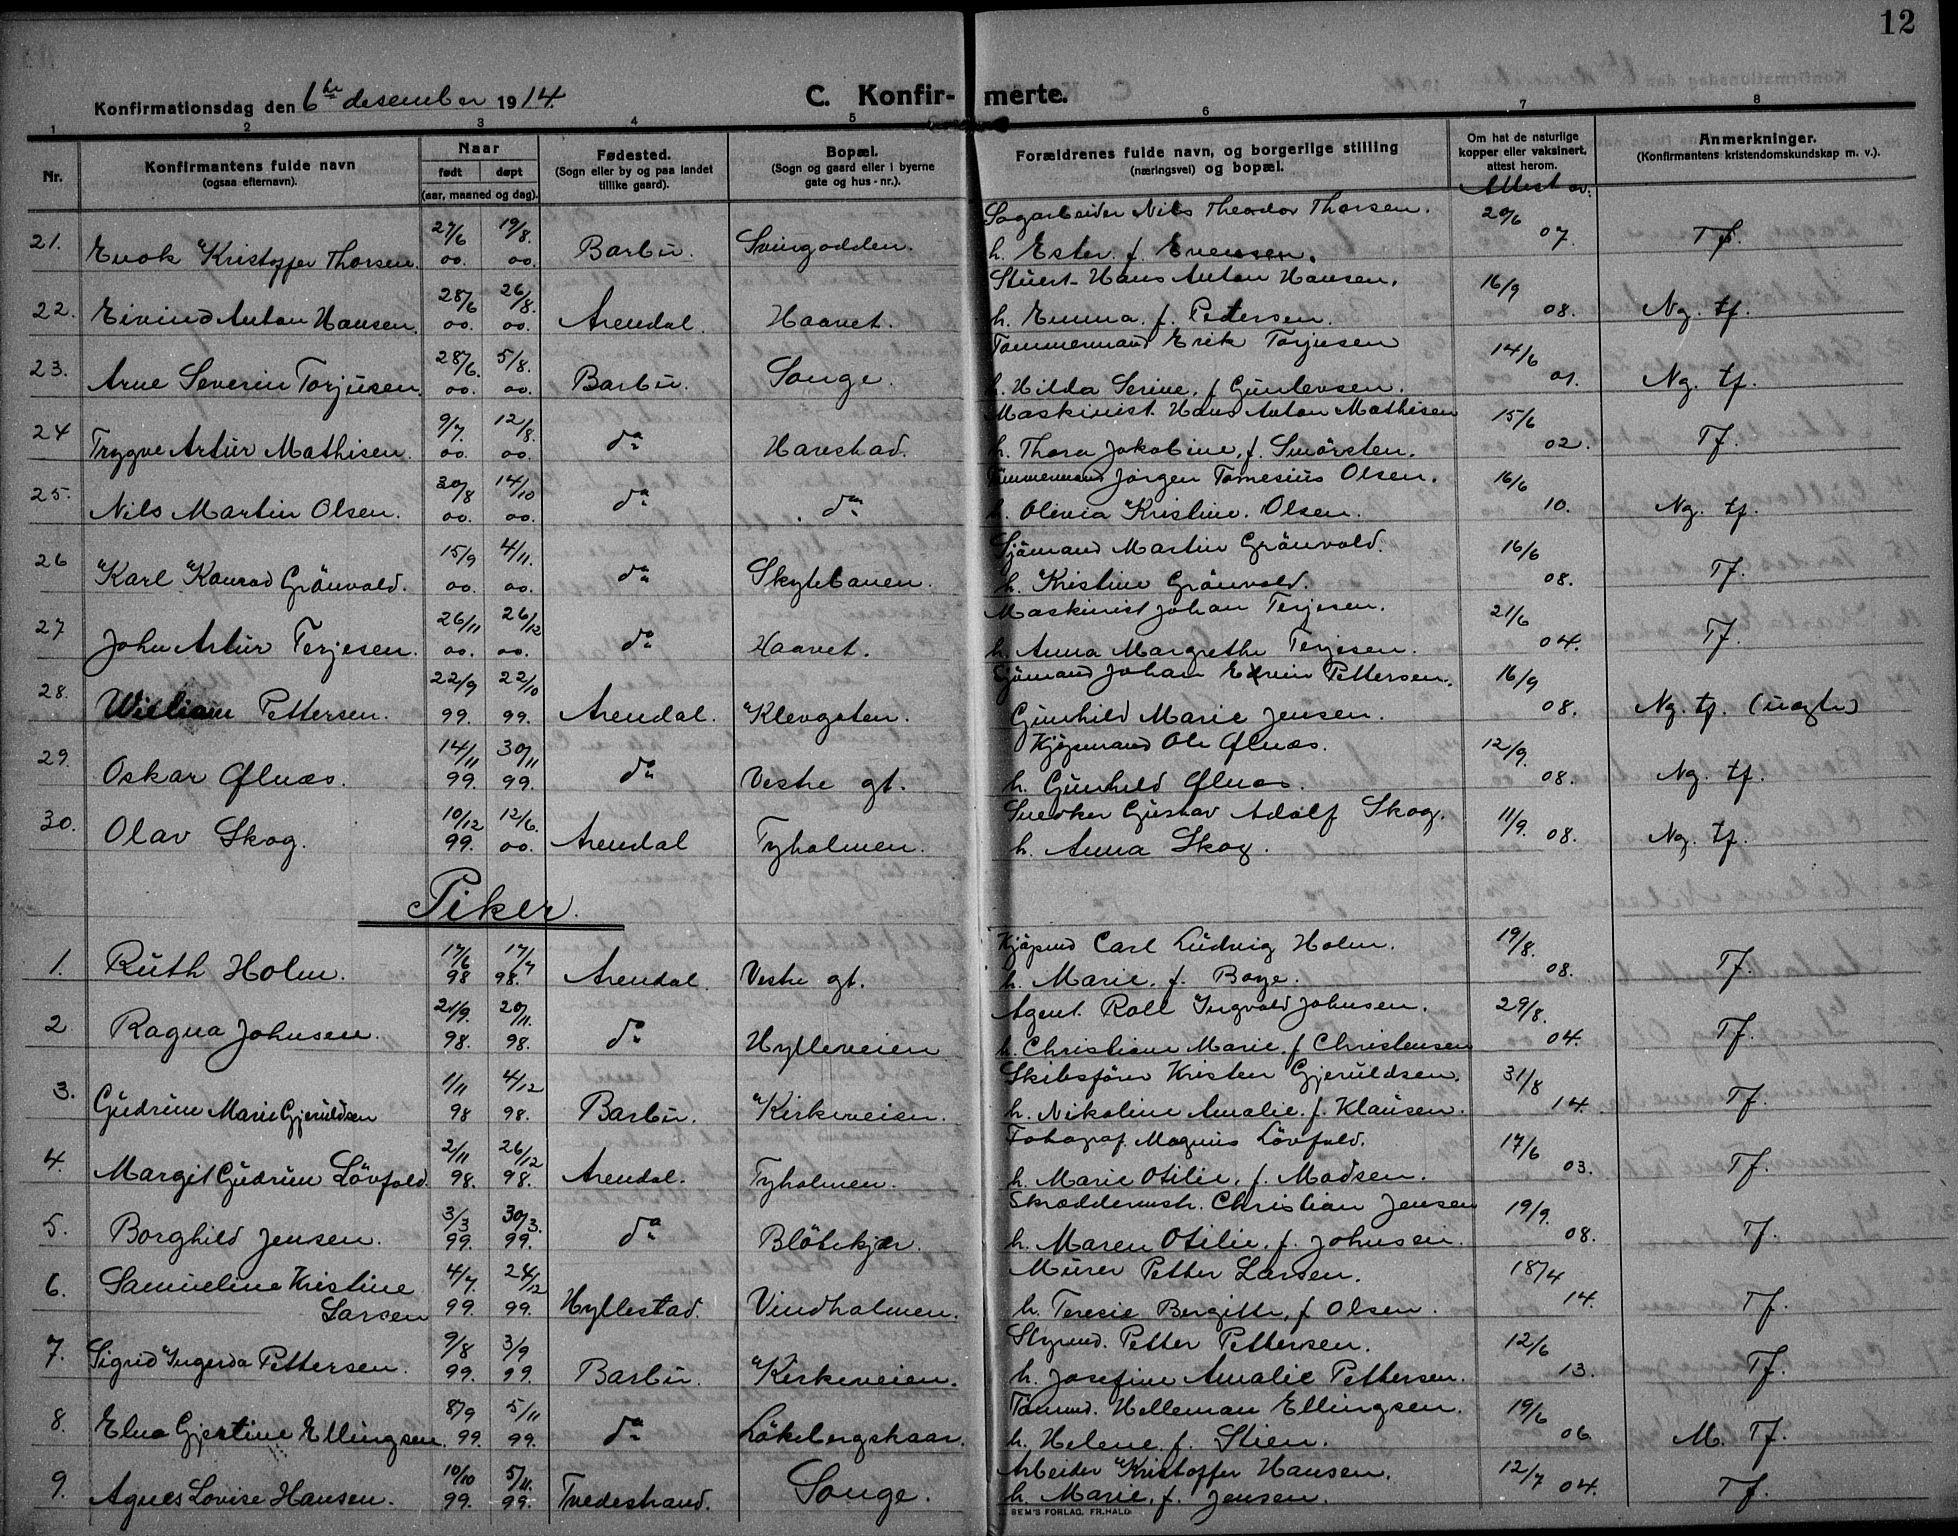 12
Konfirmationsdag den 6te desember 1914. C. Konfir- merte.
1 2 3 4 5 6 7 8
Nr. Konfirmantens fulde navn (ogsaa efternavn). Naar født døpt (aar, maaned og dag). Fødested. (Sogn eller by og paa landet tillike gaard). Bopæl. (Sogn og gaard eller i byerne gate og hus-nr.). Forældrenes fulde navn, og borgerlige stilling (næringsvei) og bopæl. Om hat de naturlige kopper eller vaksinert, attest herom. Anmerkninger. (Konfirmantens kristendomskundskap m. v.).
Attest av.
27/6 19/8. Sagarbeider Nils Theodor Thorsen. 20/6
21. Enok Kristoffer Thorsen. 00. 00. Barbu. Svingodden. h. Ester. f. Evensen. 07. Tf.
28/6 26/8. Stuert Hans Anton Hansen. 16/9
22. Eivind Anton Hansen. 00. 00. Arendal. Haavet. h. Emma. f. Pedersen. 08. Ng. tf.
28/6. 5/8. Tømmermand Erik Torjusen 14/6
23. Arne Severin Torjusen. 00. 00. Barbu. Songe. h. Hilda Serine. f Guntevsen. 01. Ng. tf.
9/7. 12/8. Maskinist Hans Anton Mathisen 15/6
24 Trygve Artur Mathisen. 00. 00. do Harestad. h. Thora Jakobine, f. Smörsten. 02. Tf.
30/8 14/10 Tømmermand Jörgen Tomesius Olsen. 16/6
25. Nils Martin Olsen. 00. 00. do do h. Olevia Kristine. Olsen. 10. Ng. tf.
15/9 4/11. Sjömand Martin Grönvold. 16/6
26 Karl Konrad Grönvold. 00. 00. do Skytebanen. h. Kristine Grönvold. 08. Tf.
26/11 26/12 Maskinist Johan Terjesen. 21/6
27 John Artur Terjesen. 00. 00. do Haavet. h. Anna Margrethe Terjesen. 04. Tf.
22/9 22/10 Sjömand Johan Edvin Pettersen. 16/9
28. William Pettersen. 99. 99. Arendal. Klevgaten. Gunhild Marie Jensen. 08. Ng. tf. (uægte)
14/11 30/11 Kjøpmand Ole Ølnæs. 12/9.
29. Oskar Ølnæs. 99. 99. do Vestre gt. h. Gunhild Ølnæs. 08. Ng. tf.
10/12 12/6. Snedker Gustav Adolf Skog. 11/9.
30. Olav Skog. 99. 00. Arendal Tyholmen. h. Anna Skog. 08. Ng. tf.
Piker.
17/6 17/7 Kjøpmd Carl Ludvig Holm. 19/8.
1. Ruth Holm. 98 98. Arendal. Vestre gt. h. Marie. f. Boye. 08. Tf.
21/9. 20/11. Agent. Roll Ingvald Johnsen. 29/8.
2 Ragna Johnsen. 98. 98. do Hylleveien h. Christiane Marie. f Christensen 04. Tf.
1/11 4/12 Skibsförer Kristen Gjeruldsen. 31/8
3. Gudrun Marie Gjeruldsen 98 98. Barbu. Kirkeveien. h. Nikoline Amalie. f. Klausen. 14. Tf.
2/11 26/12 Fotograf. Magnus Lövfold. 17/6
4. Margit Gudrun Lövfold. 98. 98. Arendal. Tyholmen. h. Marie Otilie. f. Madsen. 03. Tf.
3/3 30/3. Skræddermstr. Christian Jensen 19/9.
5. Borghild Jensen. 99. 99. do Blötekjær. h. Maren Otilie. f. Johnsen. 08. Tf.
6. Samueline Kristine 4/7 24/12 Murer Petter Larsen. 18/4
Larsen 99. 99. Hyllestad. Vindholmen. h. Teresie Bergitte, f Olsen. 14. Tf.
9/8 3/9 Stymd. Petter Pettersen. 12/6
7. Sigrid Ingerda Pettersen. 99. 99. Barbu. Kirkeveien. h. Josefine Amalie Pettersen. 13. Tf.
8/9 5/11 Tömmd. Helleman Ellingsen. 19/6
8. Elna Gjertine Ellingsen. 99. 99. do Lökebergskaar. h. Helene. f. Stien. 06 M. Tf.
10/10 5/11. Arbeider Kristoffer Hansen. 12/7
9. Agnes Lovise Hansen. 99. 99. Tvedestrand. Songe. h. Marie, f. Jensen. 04. Tf.
SEM'S FORLAG. FR.HALD.